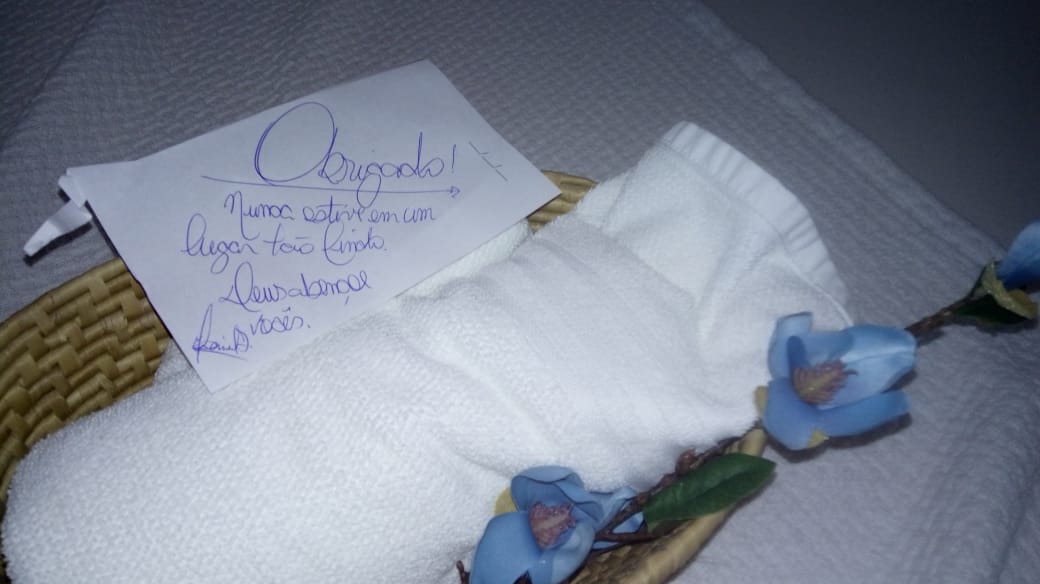 Obrigado!
Nunca estive em um
lugar tão lindo.
Deus abençoe
vocês.